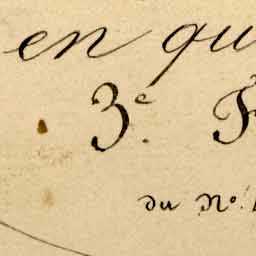 en qu
3e. F
du No.